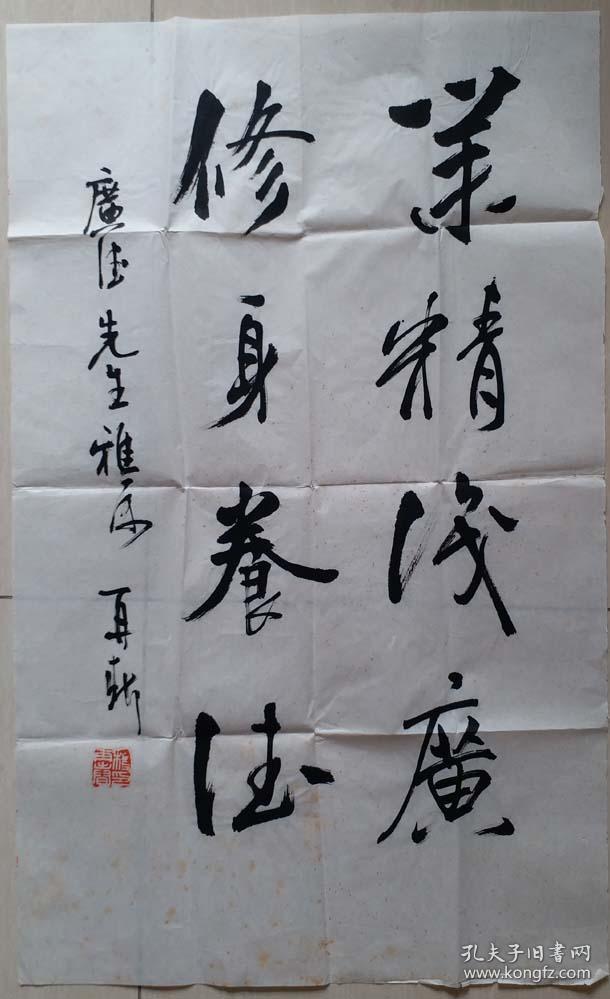 業精识廣
修身養德
廣德先生雅尔 再新
孔夫子旧书网
www.kongfz.com